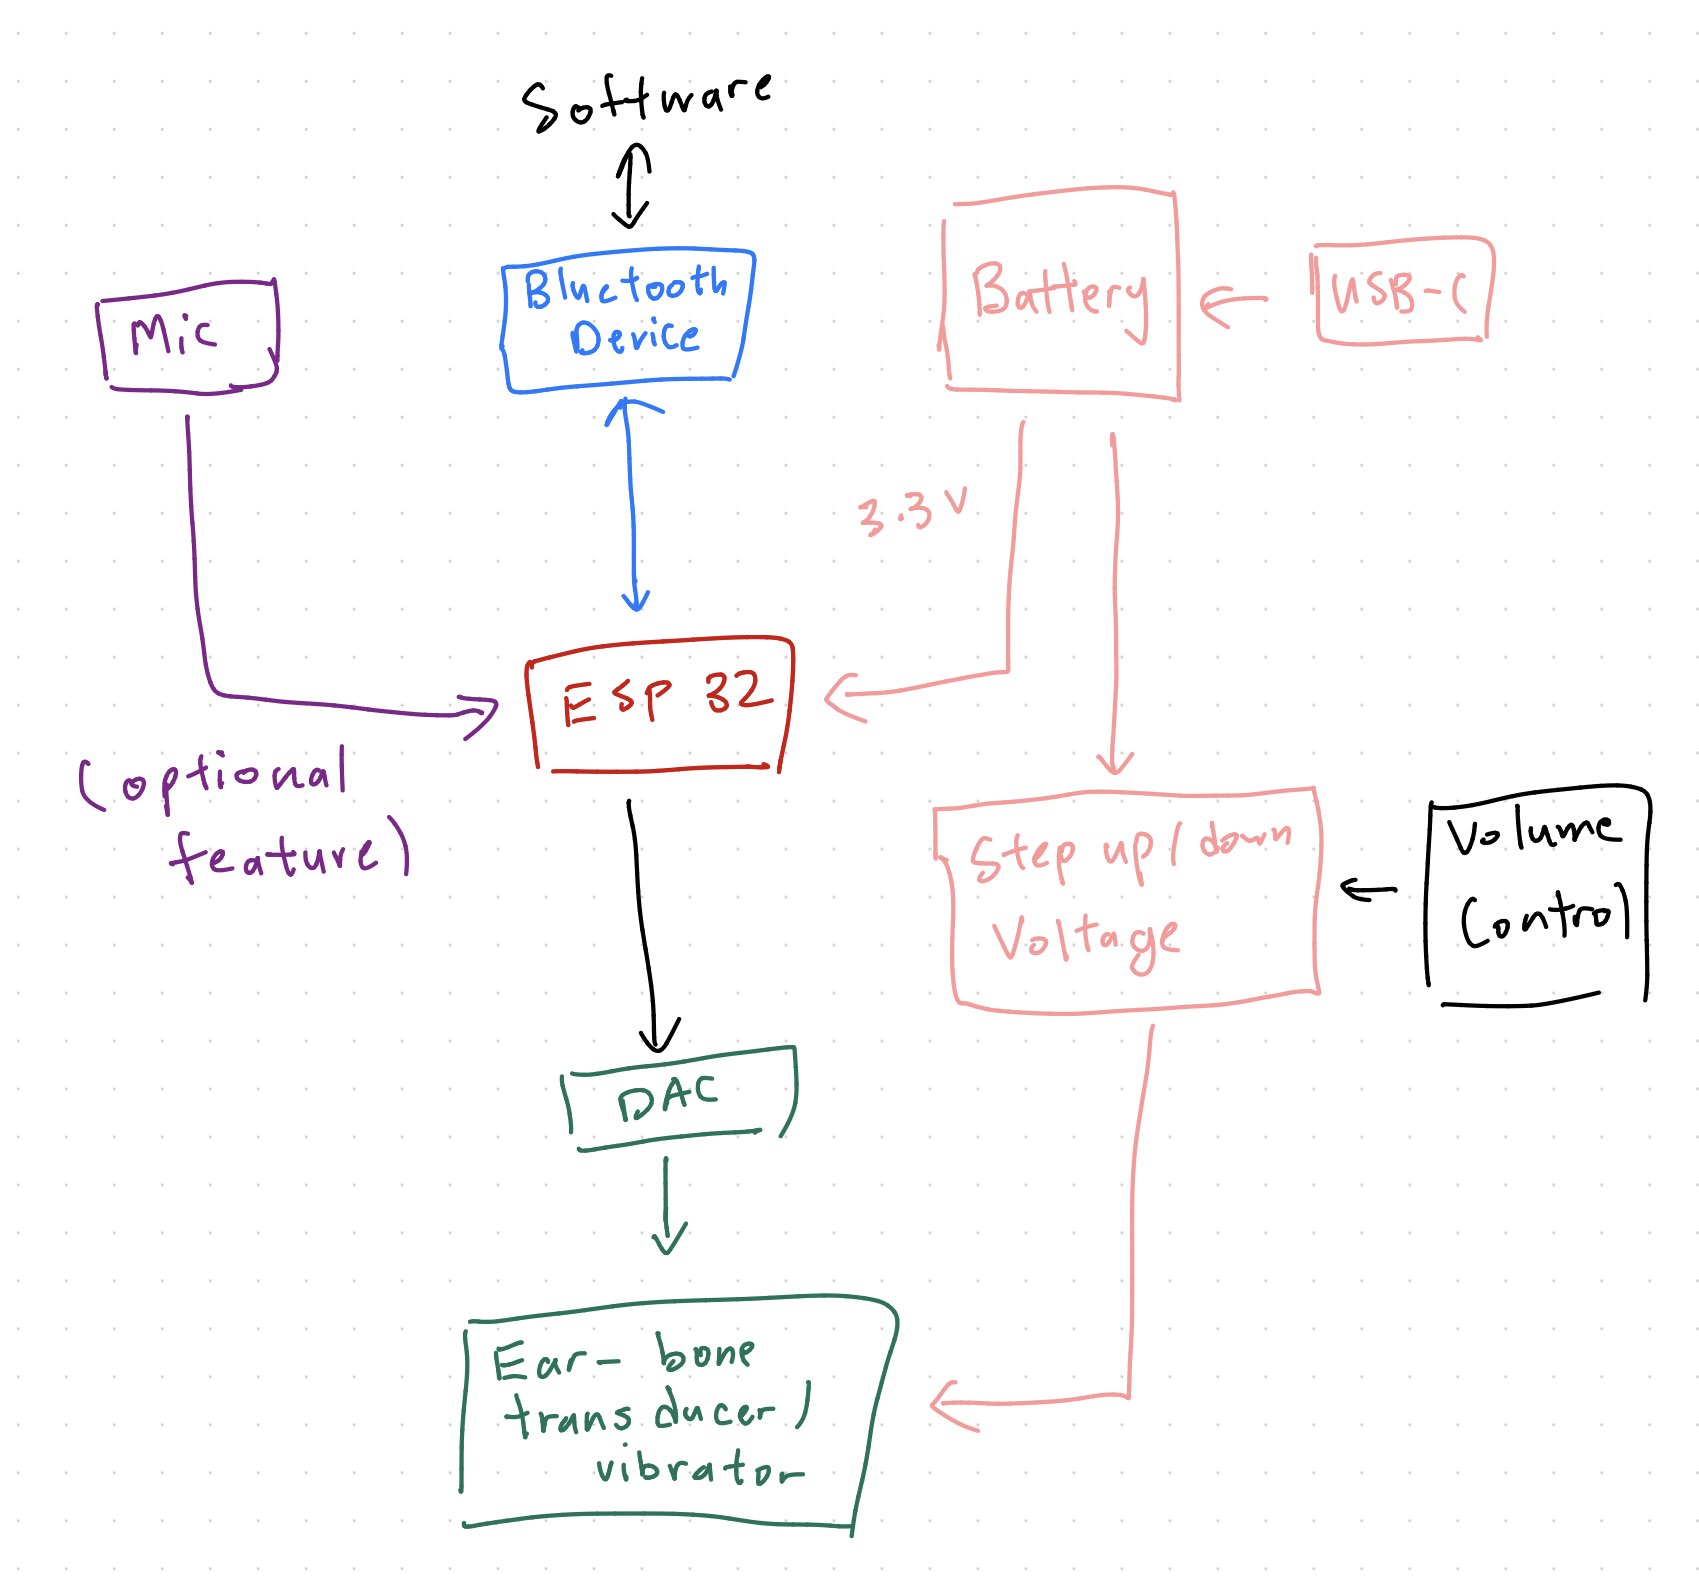 Software
Bluetooth
Device
Mic
Battery
USB-C
3.3 V
ESP 32
(optional
feature)
Step up/down
Voltage
Volume
Control
DAC
Ear-bone
transducer/
vibrator